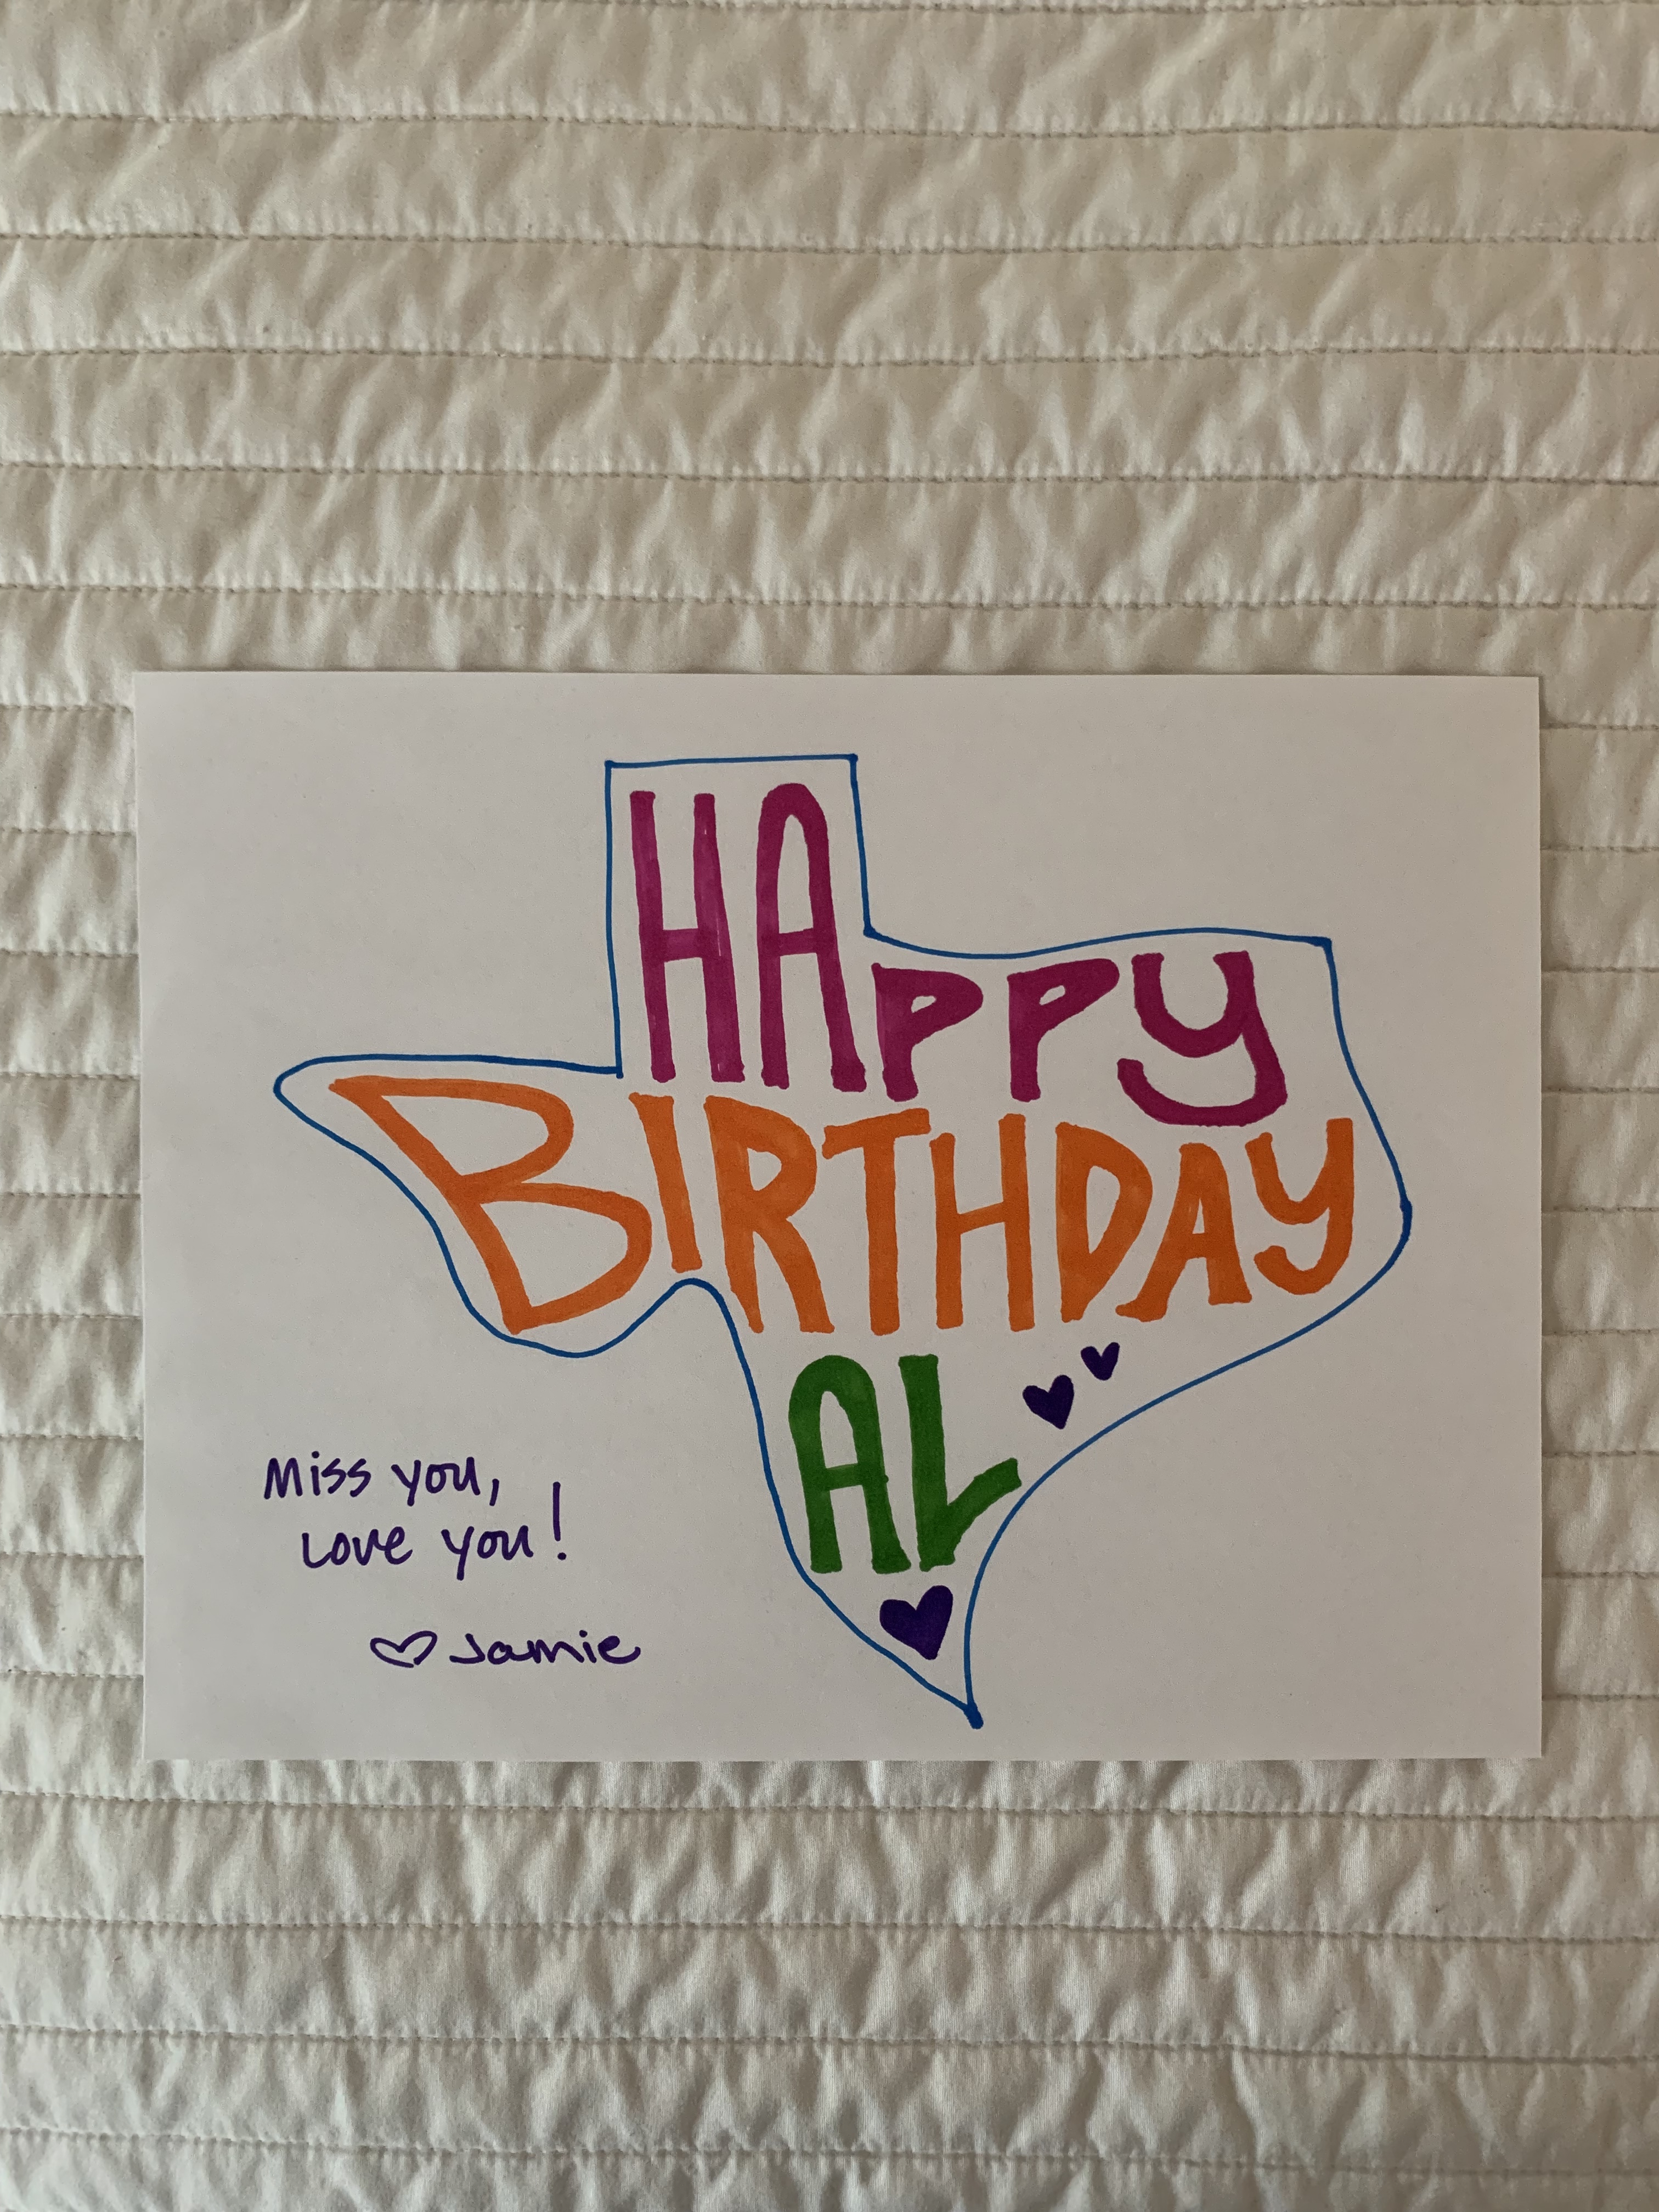 HAPPY
BIRTHDAY
AL
Miss you,
Love you!
♡ Jamie